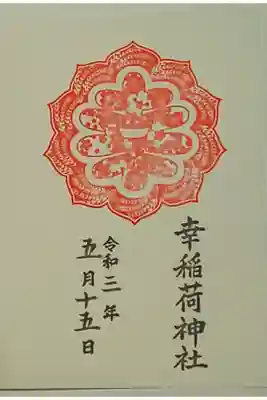 幸稲荷神社
令和三年
五月十五日